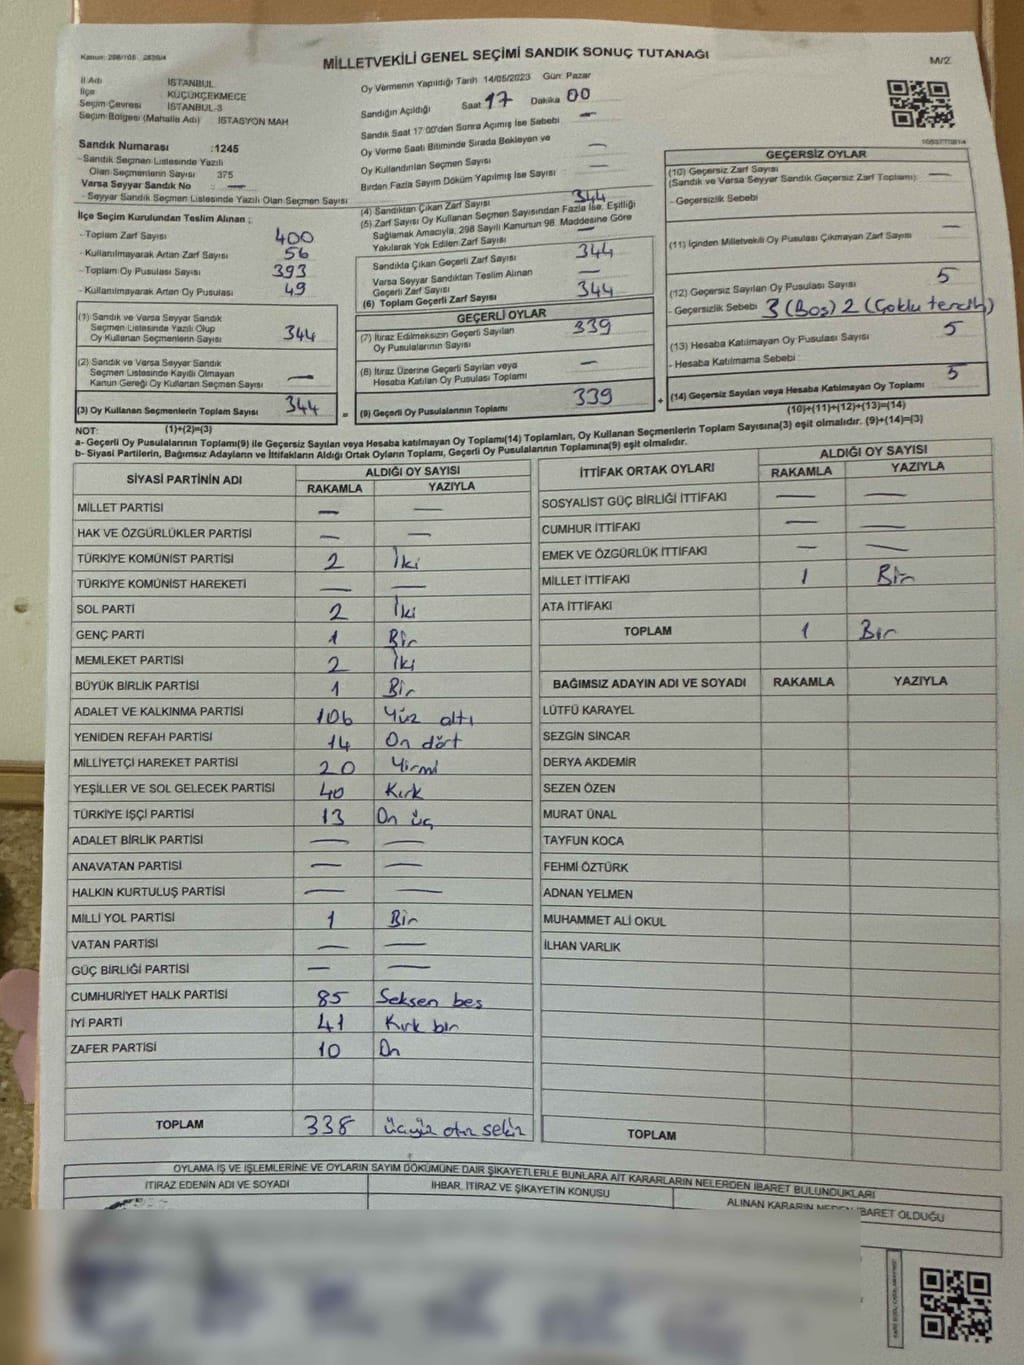 MİLLETVEKİLİ GENEL SEÇİMİ SANDIK SONUÇ TUTANAĞI
M/2
İl Adı İSTANBUL
İlçe KÜÇÜKÇEKMECE
Seçim Çevresi İSTANBUL-3
Seçim Bölgesi (Mahalle Adı) İSTASYON MAH
Sandık Numarası :1245
- Sandık Seçmen Listesinde Yazılı
Olan Seçmenlerin Sayısı 375
Varsa Seyyar Sandık No —
- Seyyar Sandık Seçmen Listesinde Yazılı Olan Seçmen Sayısı
Oy Vermenin Yapıldığı Tarih 14/05/2023 Gün: Pazar
Sandığın Açıldığı Saat 17 Dakika 00
Sandık Saat 17:00'den Sonra Açımış İse Sebebi —
Oy Verme Saati Bitiminde Sırada Bekleyen ve
Oy Kullandırılan Seçmen Sayısı —
Birden Fazla Sayım Döküm Yapılmış İse Sayısı —
İlçe Seçim Kurulundan Teslim Alınan ;
- Toplam Zarf Sayısı 400
- Kullanılmayarak Artan Zarf Sayısı 56
- Toplam Oy Pusulası Sayısı 393
- Kullanılmayarak Artan Oy Pusulası 49
(1) Sandık ve Varsa Seyyar Sandık
Seçmen Listesinde Yazılı Olup
Oy Kullanan Seçmenlerin Sayısı 344
(2) Sandık ve Varsa Seyyar Sandık
Seçmen Listesinde Kayıtlı Olmayan
Kanun Gereği Oy Kullanan Seçmen Sayısı —
(3) Oy Kullanan Seçmenlerin Toplam Sayısı 344 =
(1)+(2)=(3)
(4) Sandıktan Çıkan Zarf Sayısı 344
(5) Zarf Sayısı Oy Kullanan Seçmen Sayısından Fazla İse, Eşitliği
Sağlamak Amacıyla, 298 Sayılı Kanunun 98. Maddesine Göre
Yakılarak Yok Edilen Zarf Sayısı —
Sandıkta Çıkan Geçerli Zarf Sayısı 344
Varsa Seyyar Sandıktan Teslim Alınan
Geçerli Zarf Sayısı —
(6) Toplam Geçerli Zarf Sayısı 344
GEÇERLİ OYLAR
(7) İtiraz Edilmeksizin Geçerli Sayılan
Oy Pusulalarının Sayısı 339
(8) İtiraz Üzerine Geçerli Sayılan veya
Hesaba Katılan Oy Pusulası Toplamı —
(9) Geçerli Oy Pusulalarının Toplamı 339 +
GEÇERSİZ OYLAR
(10) Geçersiz Zarf Sayısı
(Sandık ve Varsa Seyyar Sandık Geçersiz Zarf Toplamı) —
- Geçersizlik Sebebi
(11) İçinden Milletvekili Oy Pusulası Çıkmayan Zarf Sayısı —
(12) Geçersiz Sayılan Oy Pusulası Sayısı 5
- Geçersizlik Sebebi 3 (Boş) 2 (Çoklu tercih)
(13) Hesaba Katılmayan Oy Pusulası Sayısı 5
- Hesaba Katılmama Sebebi
(14) Geçersiz Sayılan veya Hesaba Katılmayan Oy Toplamı 5
(10)+(11)+(12)+(13)=(14)
NOT:
a- Geçerli Oy Pusulalarının Toplamı(9) ile Geçersiz Sayılan veya Hesaba katılmayan Oy Toplamı(14) Toplamları, Oy Kullanan Seçmenlerin Toplam Sayısına(3) eşit olmalıdır. (9)+(14)=(3)
b- Siyasi Partilerin, Bağımsız Adayların ve İttifakların Aldığı Ortak Oyların Toplamı, Geçerli Oy Pusulalarının Toplamına(9) eşit olmalıdır.
SİYASİ PARTİNİN ADI ALDIĞI OY SAYISI
RAKAMLA YAZIYLA
MİLLET PARTİSİ — —
HAK VE ÖZGÜRLÜKLER PARTİSİ — —
TÜRKİYE KOMÜNİST PARTİSİ 2 İki
TÜRKİYE KOMÜNİST HAREKETİ — —
SOL PARTİ 2 İki
GENÇ PARTİ 1 Bir
MEMLEKET PARTİSİ 2 İki
BÜYÜK BİRLİK PARTİSİ 1 Bir
ADALET VE KALKINMA PARTİSİ 106 Yüz altı
YENİDEN REFAH PARTİSİ 14 On dört
MİLLİYETÇİ HAREKET PARTİSİ 20 Yirmi
YEŞİLLER VE SOL GELECEK PARTİSİ 40 Kırk
TÜRKİYE İŞÇİ PARTİSİ 13 On üç
ADALET BİRLİK PARTİSİ — —
ANAVATAN PARTİSİ — —
HALKIN KURTULUŞ PARTİSİ — —
MİLLİ YOL PARTİSİ 1 Bir
VATAN PARTİSİ — —
GÜÇ BİRLİĞİ PARTİSİ — —
CUMHURİYET HALK PARTİSİ 85 Seksen beş
İYİ PARTİ 41 Kırk bir
ZAFER PARTİSİ 10 On
TOPLAM 338 üçyüz otuz sekiz
İTTİFAK ORTAK OYLARI ALDIĞI OY SAYISI
RAKAMLA YAZIYLA
SOSYALİST GÜÇ BİRLİĞİ İTTİFAKI — —
CUMHUR İTTİFAKI — —
EMEK VE ÖZGÜRLÜK İTTİFAKI — —
MİLLET İTTİFAKI 1 Bir
ATA İTTİFAKI
TOPLAM 1 Bir
BAĞIMSIZ ADAYIN ADI VE SOYADI RAKAMLA YAZIYLA
LÜTFÜ KARAYEL
SEZGİN SİNCAR
DERYA AKDEMİR
SEZEN ÖZEN
MURAT ÜNAL
TAYFUN KOCA
FEHMİ ÖZTÜRK
ADNAN YELMEN
MUHAMMET ALİ OKUL
İLHAN VARLIK
TOPLAM
OYLAMA İŞ VE İŞLEMLERİNE VE OYLARIN SAYIM DÖKÜMÜNE DAİR ŞİKAYETLERLE BUNLARA AİT KARARLARIN NELERDEN İBARET BULUNDUKLARI
İTİRAZ EDENİN ADI VE SOYADI İHBAR, İTİRAZ VE ŞİKAYETİN KONUSU ALINAN KARARIN NEDEN İBARET OLDUĞU